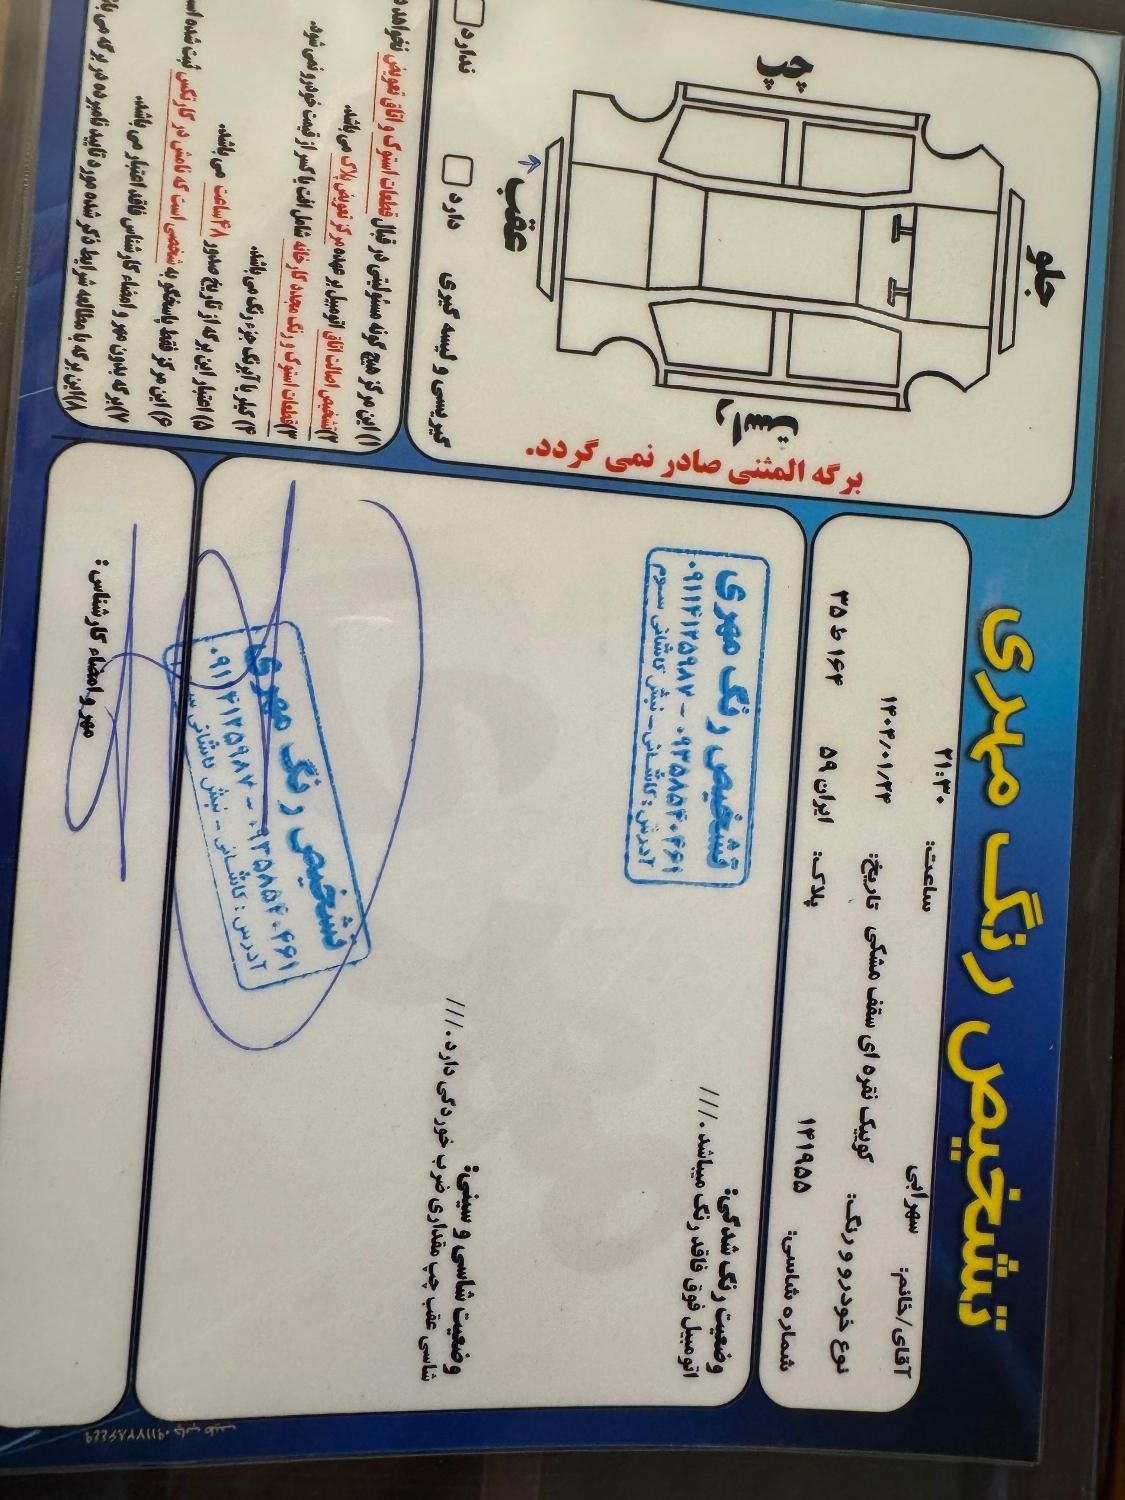 تشخیص رنگ مهری
آقای/خانم: سهرابی
ساعت: ۲۱:۳۰
نوع خودرو و رنگ: کوییک نقره ای سقف مشکی
تاریخ: ۱۴۰۴/۰۱/۲۴
شماره شاسی: ۱۴۱۹۵۵
پلاک: ایران ۵۹ ۱۶۴ ط ۳۵
وضعیت رنگ شدگی:
اتومبیل فوق فاقد رنگ میباشد.///
تشخیص رنگ مهری
۰۹۱۱۴۱۲۵۹۸۷ - ۰۹۳۵۸۵۴۰۴۶۱
آدرس: کاشانی - نبش کاشانی سوم
وضعیت شاسی و سینی:
شاسی عقب چپ مقداری ضرب خوردگی دارد.///
تشخیص رنگ مهری
۰۹۱۱۴۱۲۵۹۸۷ - ۰۹۳۵۸۵۴۰۴۶۱
آدرس: کاشانی - نبش کاشانی
مهر و امضاء کارشناس:
چپ
جلو
عقب
راست
برگه المثنی صادر نمی گردد.
گیربسی و لیسه گیری دارد ندارد
۱) این مرکز هیچ گونه مسئولیتی در قبال قطعات استوک و اتاق تعویض نخواهد
۲) تشخیص اصالت اتاق اتومبیل بر عهده مرکز تعویض پلاک می باشد.
۳) قطعات استوک و رنگ مجدد کارخانه شامل افت یا کسر از قیمت خودرو نمی شود.
۴) کیلر یا آبرنگ جزء رنگ می باشد.
۵) اعتبار این برگه از تاریخ صدور ۴۸ ساعت می باشد.
۶) این مرکز فقط پاسخگو به شخصی است که نامش در کارتکس ثبت شده
۷) برگه بدون مهر و امضاء کارشناس فاقد اعتبار می باشد.
۸) این برگه با مطالعه شرایط ذکر شده مورد تایید نامبرده در برگه می